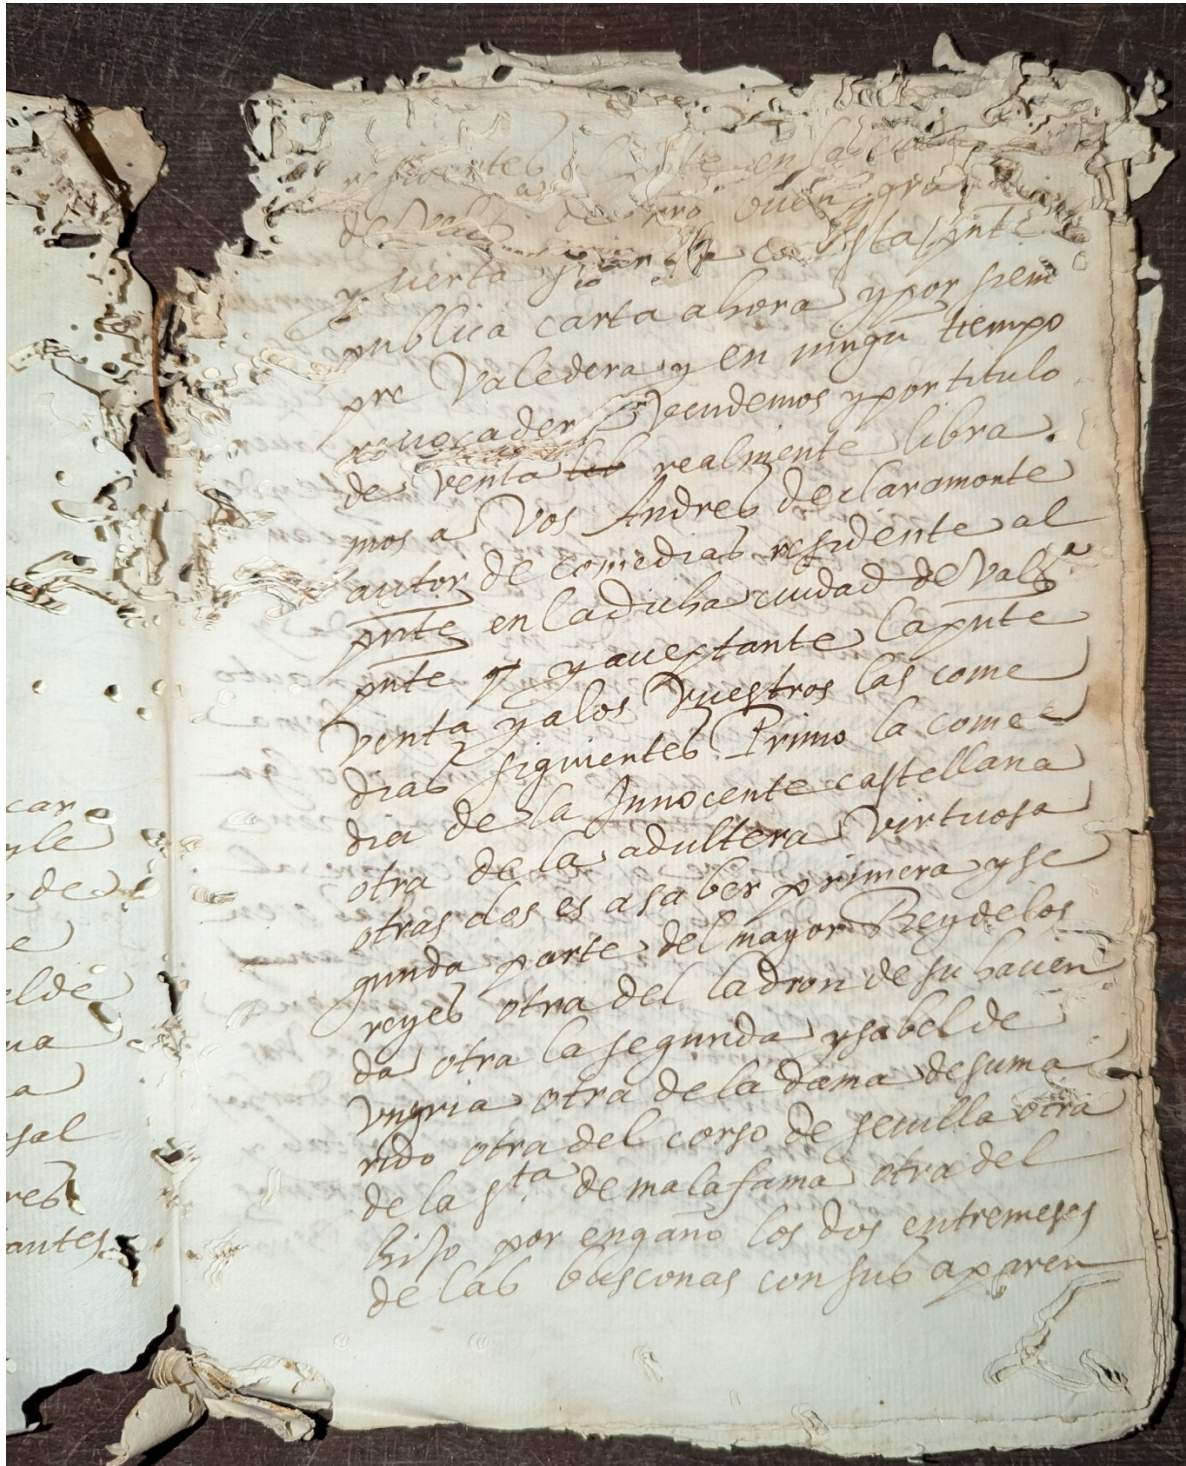 car
yle
de
e
elde
ua
a
sal
res
antes
residentes al pnte en la ciudad
de Val de nro buen grado
y cierta con esta pnte
publica carta ahora y por siem
pre Valedera y en ningu tiempo
revocadera Vendemos y por titulo
de venta realmente libra
mos a Vos Andres de claramonte
autor de comedias residente al
pnte en la dicha ciudad de Vala
pnte y aceptante la pnte
Venta y a los Vuestros las come
dias siguientes Primo la come
dia de la Innocente castellana
otra de la adultera Virtuosa
otras dos es a saber primera y se
gunda parte del mayor Rey de los
reyes otra del ladron de su hacien
da otra la segunda ysabel de
Vngria otra de la dama de su ma
rido otra del corso de sevilla otra
de la sta de mala fama otra del
hijo por engaño los dos entremeses
de las busconas con sus aparen